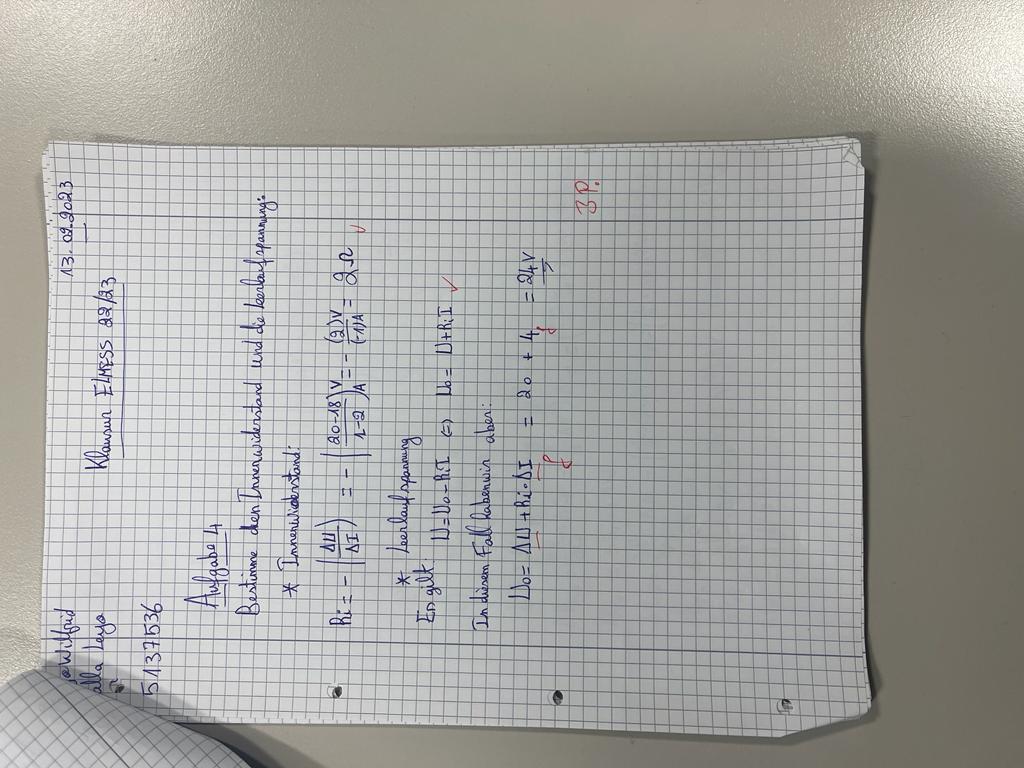 Wilfrid
13.09.2023
Klausur ElMESS 22/23
51137536
Aufgabe 4
Bestimme den Innenwiderstand und die Leerlaufspannung:
* Innenwiderstand:
Ri = - (ΔU/ΔI) = - (20-18)V/(1-2)A = - (2)V/(-1)A = 2Ω ✓
* Leerlaufspannung
Es gilt: U=U0-RiI <=> U0 = U+RiI ✓
In diesem Fall haben wir aber:
U0 = ΔU+Ri·ΔI = 20 + 4 = 24V
f f
3P.